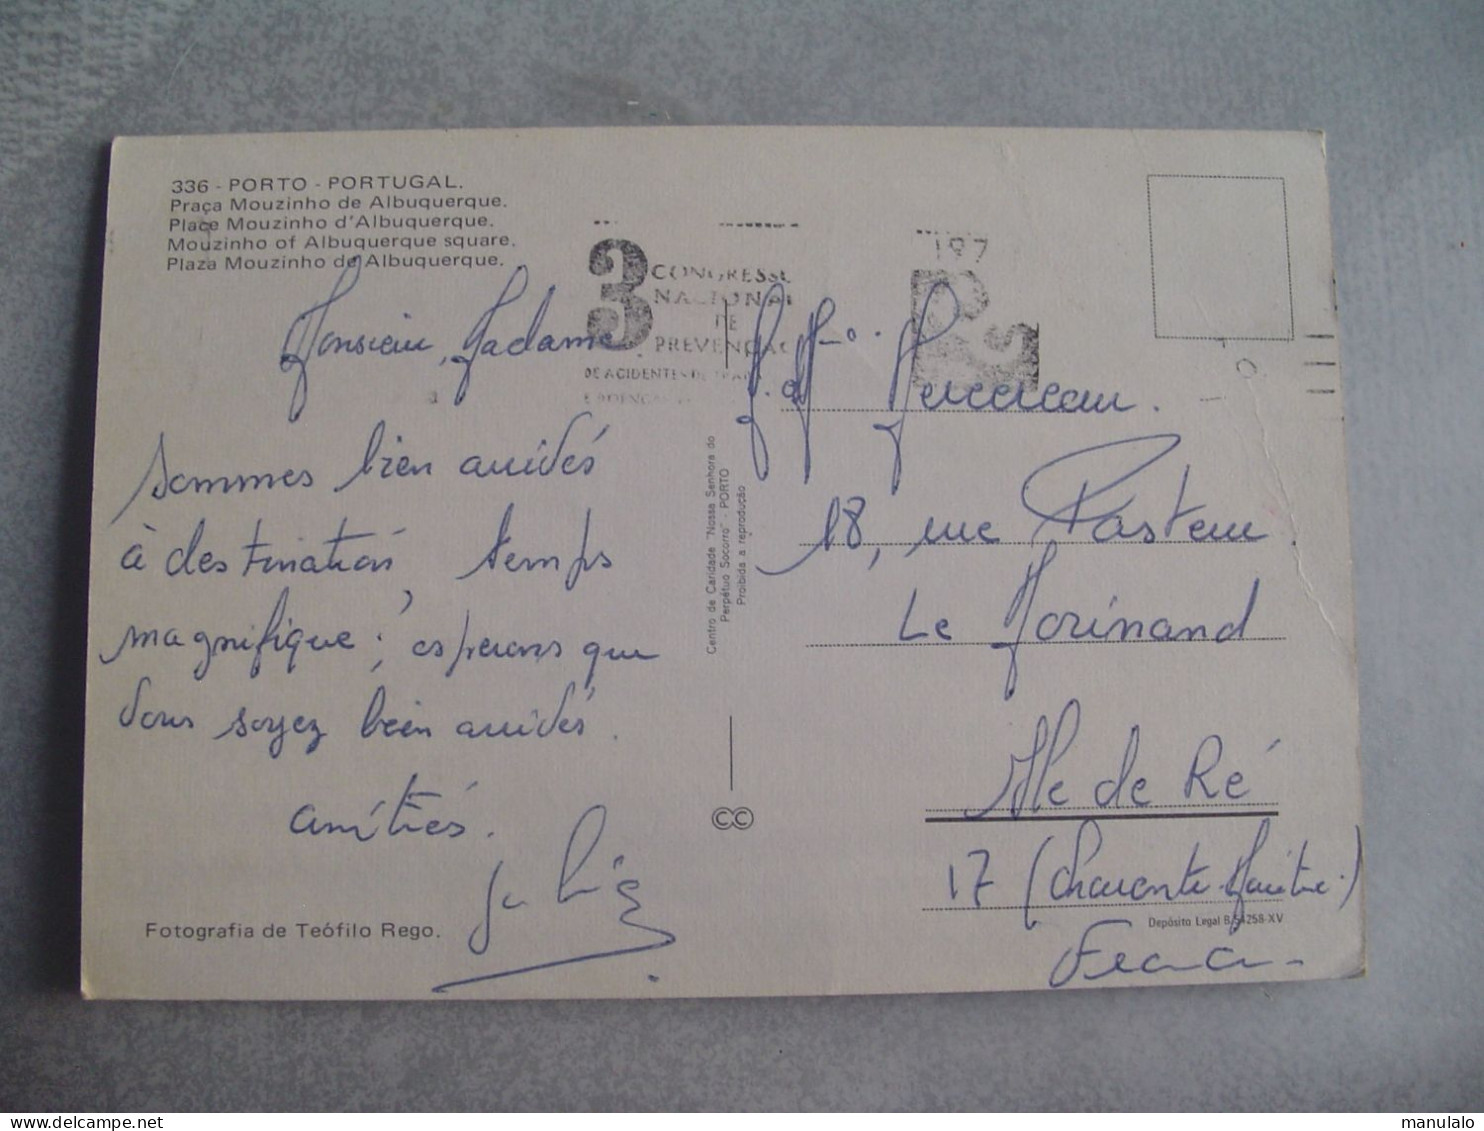 336 - PORTO - PORTUGAL.
Praça Mouzinho de Albuquerque.
Place Mouzinho d'Albuquerque.
Mouzinho of Albuquerque square.
Plaza Mouzinho de Albuquerque.
3 CONGRESSO
NACIONAL
DE
PREVENÇÃO
DE ACIDENTES DE
197
Monsieur, Madame.
sommes bien arrivés
à destination, temps
magnifique; espérons que
vous soyez bien arrivés.
amitiés.
Fotografia de Teófilo Rego.
Centro de Caridade "Nossa Senhora do
Perpétuo Socorro" - PORTO
Proibida a reprodução
CC
Mercereau.
18, rue Pasteur.
Le Morinand
Ile de Ré
17 (Charente Maritime)
France
Depósito Legal B. 54258-XV
manulalo